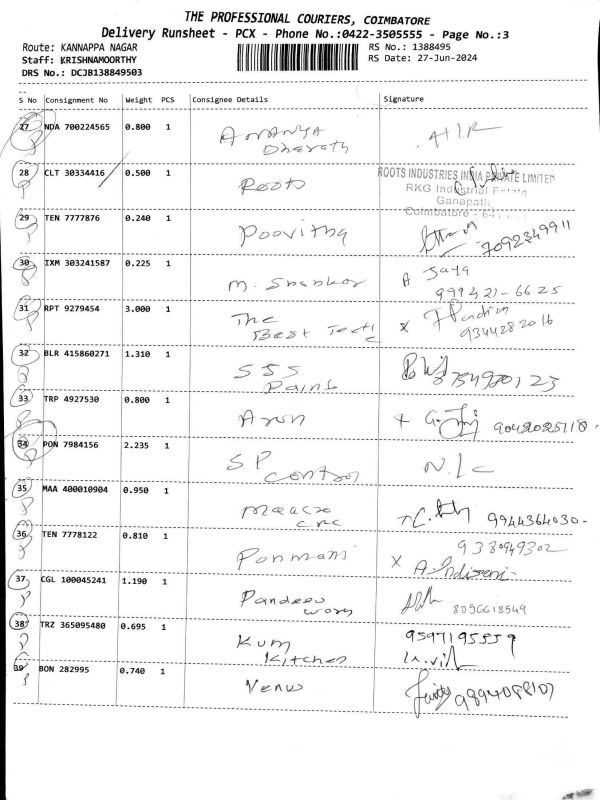 THE PROFESSIONAL COURIERS, COIMBATORE
Delivery Runsheet - PCX - Phone No.:0422-3505555 - Page No.:3
Route: KANNAPPA NAGAR
RS No.: 1388495
Staff: KRISHNAMOORTHY
RS Date: 27-Jun-2024
DRS No.: DCJB138849503
S No Consignment No Weight PCS Consignee Details Signature
27 NDA 700224565 0.800 1 Ananya
Bharath
28 CLT 30334416 0.500 1 Roots ROOTS INDUSTRIES INDIA PRIVATE LIMITED
RKG Industrial Estate
Ganapathi
Coimbatore - 641
29 TEN 7777876 0.240 1 Poovitha 7092349911
30 IXM 303241587 0.225 1 M. Shankar Jaya
999421-6625
31 RPT 9279454 3.000 1 The
Best Tech 9344282016
32 BLR 415860271 1.310 1 SSS
Paints
33 TRP 4927530 0.800 1 Arun 9042025118
34 PON 7984156 2.235 1 SP
Control N.I.C
35 MAA 400010904 0.950 1 Maacro
cnc 9944364030
36 TEN 7778122 0.810 1 Ponmani 9380949302
37 CGL 100045241 1.190 1 Pandees
wary 8056618549
38 TRZ 365095480 0.695 1 Kum
Kitchen 9597195559
39 BON 282995 0.740 1 Venu 9894088107